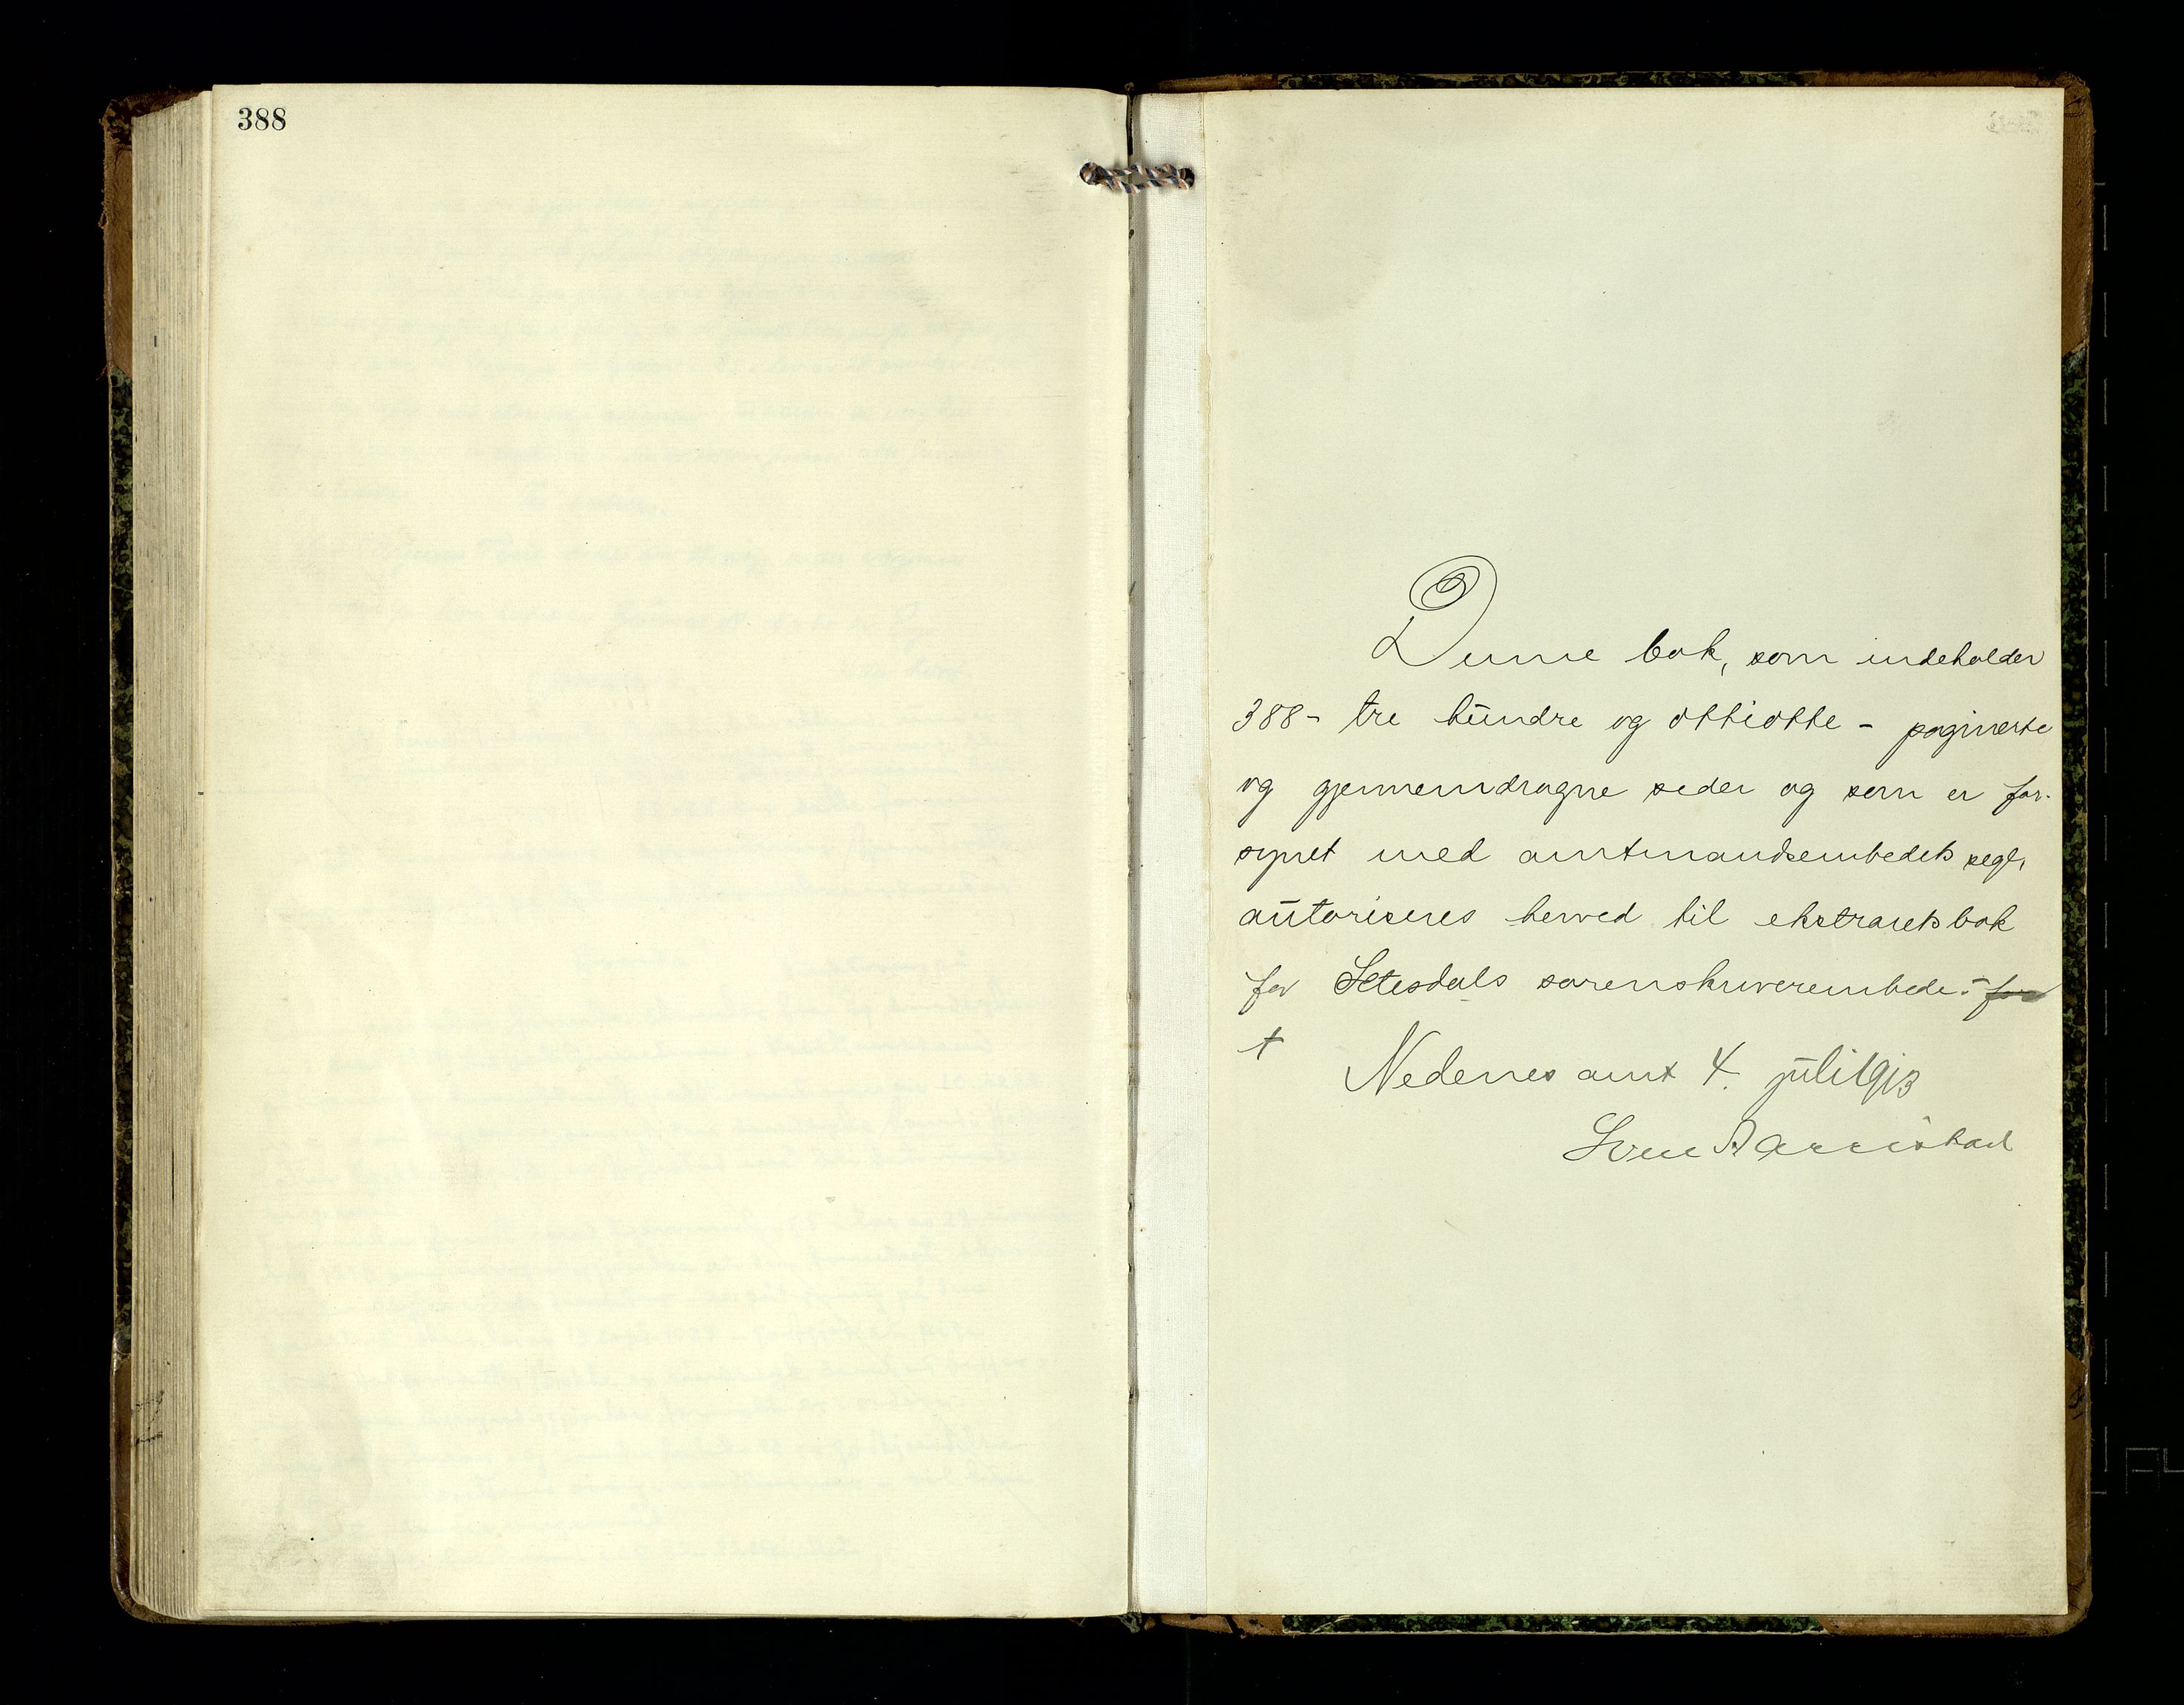 388
Denne bok, som indeholder
388 - tre hundre og ottiotte - paginerte
og gjennemdragne sider og som er for-
synet med amtmandsembedets segl,
autoriseres herved til ekstraretsbok
for Setesdals sorenskriverembede. - for
t
Nedenes amt 4. juli 1913
Sven Aarrestad